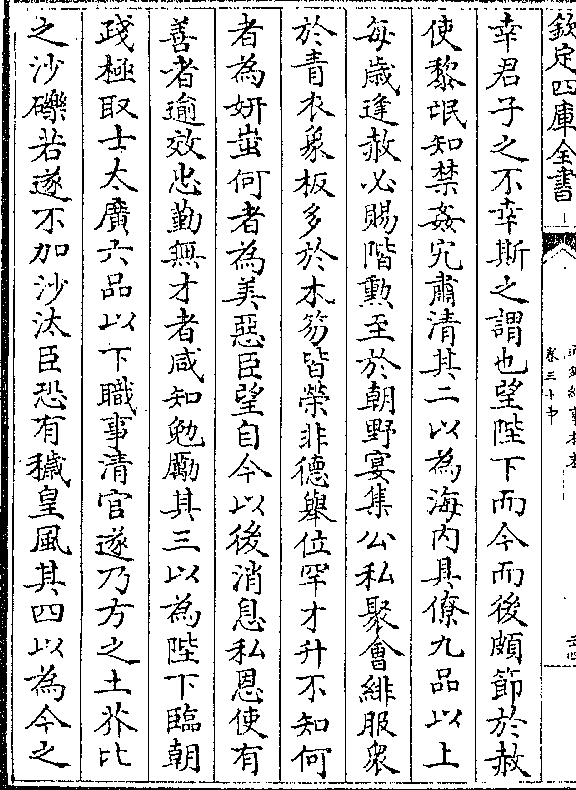 欽定四庫全書
幸君子之不幸斯之謂也望陛下而今而後頗節於赦
使黎氓知禁姦宄肅清其二以為海内具僚九品以上
每歲逢赦必賜階勲至於朝野宴集公私聚會緋服衆
於青衣象板多於木笏皆榮非德舉位罕才升不知何
者為妍蚩何者為美惡臣望自今以後消息私恩使有
善者逾效忠勤無才者咸知勉勵其三以為陛下臨朝
踐極取士太廣六品以下職事清官遂乃方之土芥比
之沙礫若遂不加沙汰臣恐有穢皇風其四以為今之